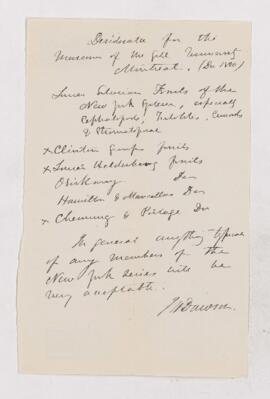 Desiderata for the
Museum of McGill University
Montreal. (Dec 1880)
Lower Silurian Fossils of the
New York Series, especially
Cephalopods, Trilobites, Crinoids
& Stromatoporae
x Clinton Group fossils
x Lower Helderberg fossils
Oriskany Do
Hamilton & Marcellus Do
x Chemung & Portage Do
In general anything typical
of any members of the
New York series will be
very acceptable.
J W Dawson